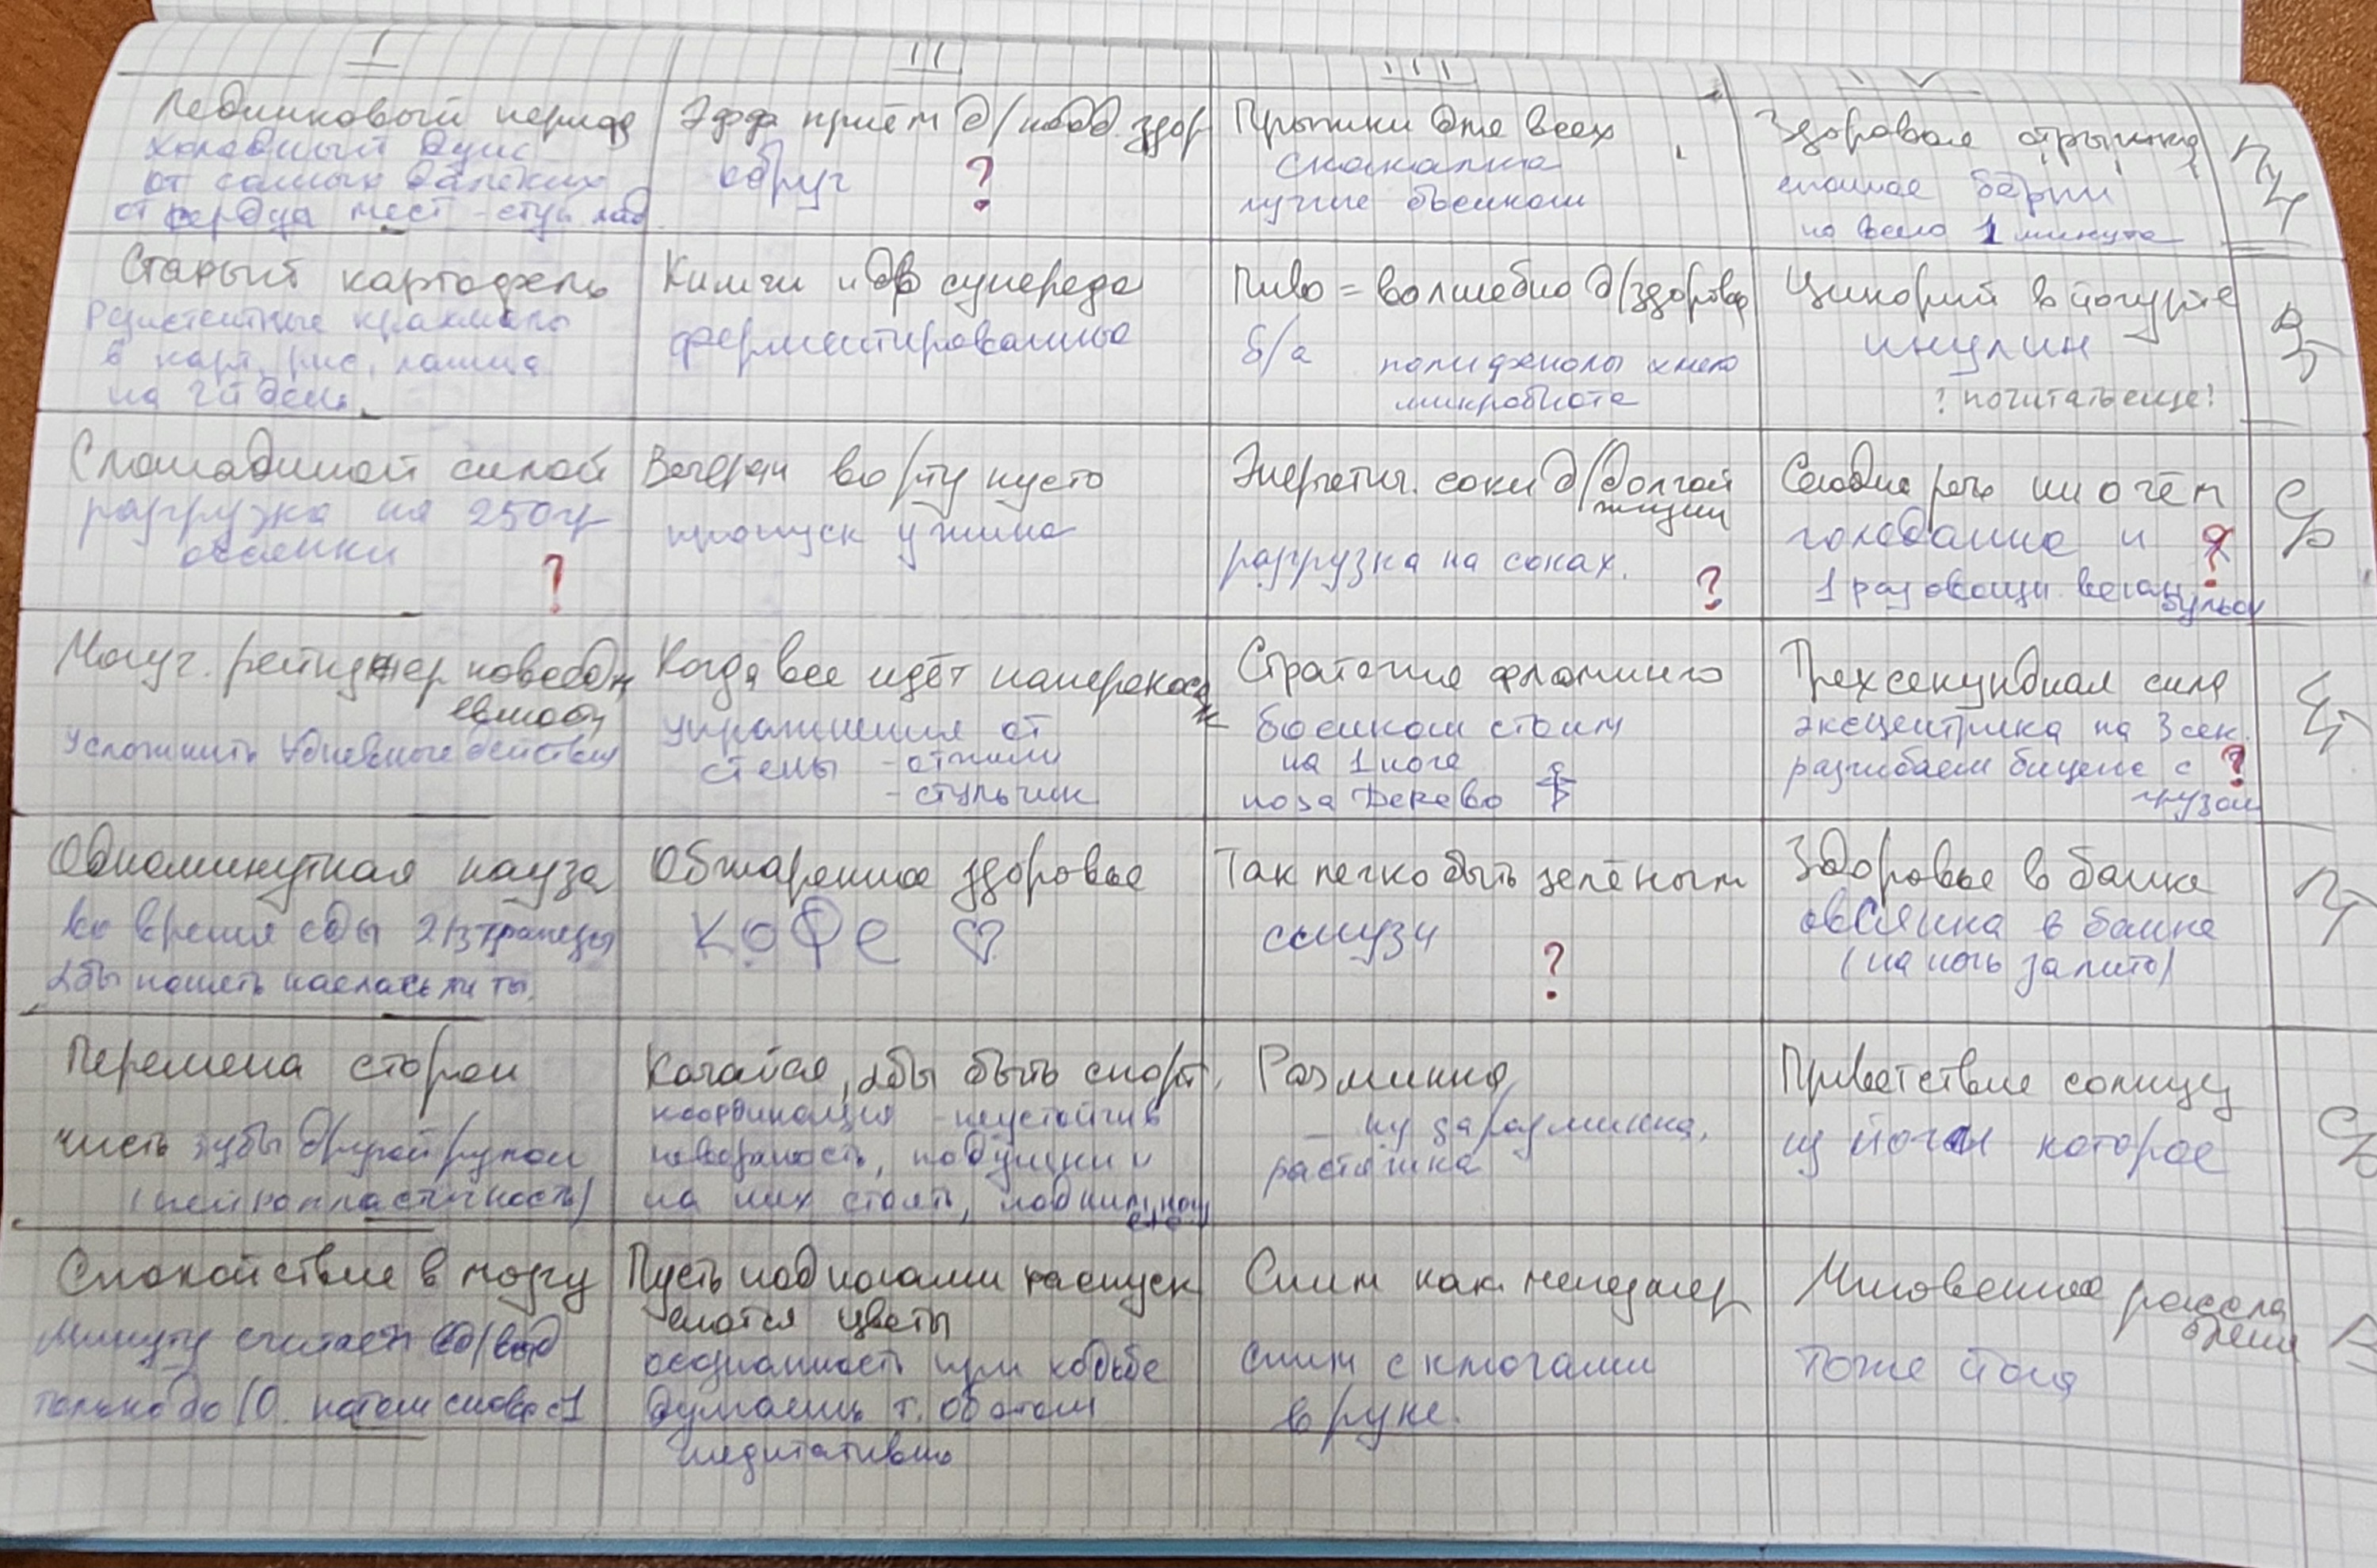 I
II
III
IV
Ледниковый период
холодный душ
от самых далёких
от сердца мест - ступ
Эфф приём д/подд. здор
обруч ?
Прыжки для всех
скакалка
лучше босиком
Здоровая отрыжка
берпи
на всего 1 минута
ПН
Старый картофель
Резистентные крахмалы
в карт, рис, лапша
на 2й день
Кимчи и др суперeда
ферментированные
Пиво = волшебно д/здоровья
б/а полифенолы хмеля
микробиота
Цикорий в йогурте
инулин
? почитать еще!
Вт
С лошадиной силой
разгрузка на 250гр
овсянки
?
Вечером во рту пусто
пропуск ужина
Энергетич. соки д/долгой
жизни
разгрузка на соках.
?
Сегодня речь ни о чём
голодание и ?
1 раз овощн. веган
бульон
Ср
Могуч. рейнджер повседн
евности
Усложнить дневные действия
Когда все идёт наперекосяк
упражнения от
стены - отжим
- стульчик
Стратегия фламинго
босиком стоим
на 1 ноге
поза Дерево
Трехсекундная сила
эксцентрика на 3 сек.
разгибаем бицепс с ?
грузом
Чт
Одноминутная пауза
во время еды 2/3 трапезы
абы понять наелась ли ты.
Обжаренное здоровье
Кофе ♡
Так легко быть зелёным
смузи
?
Здоровье в банке
овсянка в банке
(на ночь залито)
ПТ
Перемена сторон
чисть зубы другой рукой
(нейропластичность)
Качайся, абы быть спорт,
координация - неустойчив
поверхность, подушки и
на них стоять,
Разминка
- ну за разминка,
растяжка
Приветствие солнцу
из йоги которое
Сб
Спокойствие в мозгу
Минуту считаем
только до 10. потом снова с 1
Пусть под ногами распуск
аются цветы
осознанность при ходьбе
думаешь т. об этом
медитативно
Спим как менеджер
спим с ключами
в руке.
Мгновенное рассла
бление
тоже йога
В